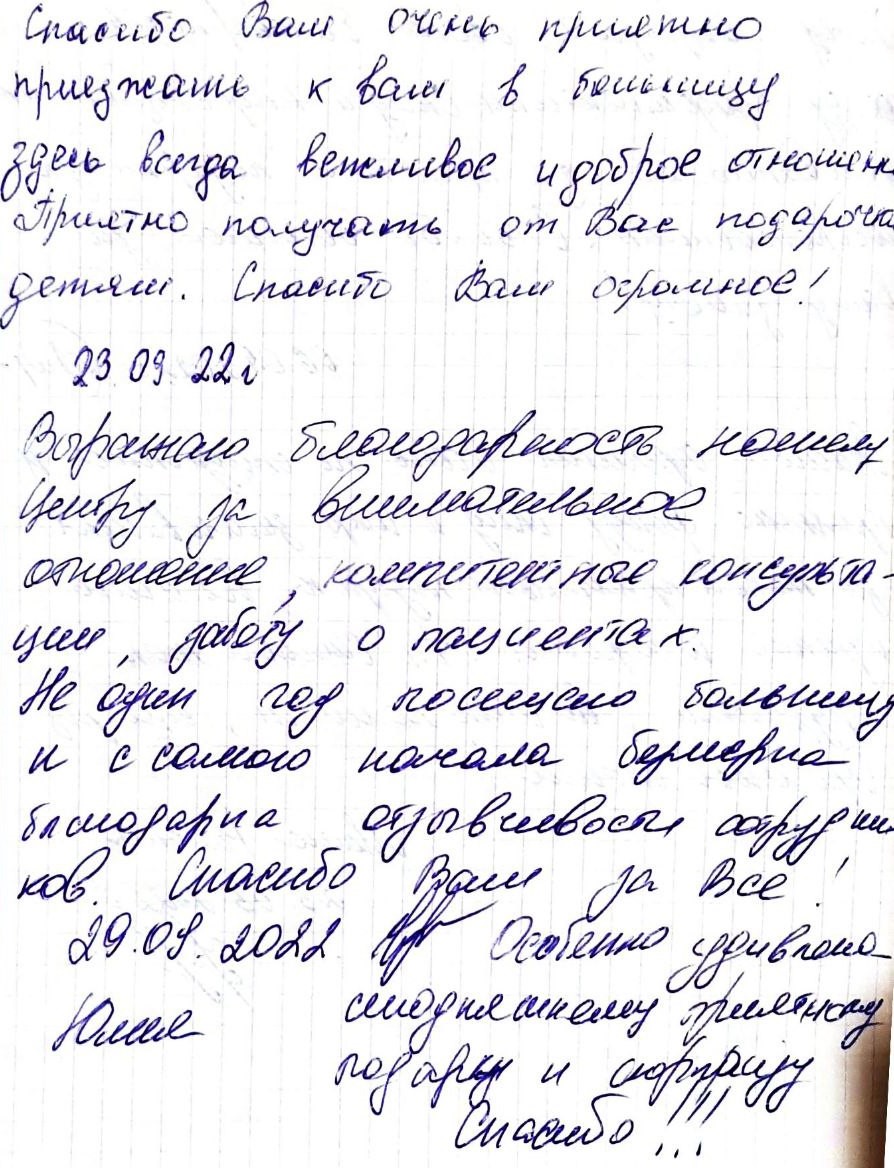 Спасибо Вам очень приятно
приезжать к вам в больницу
здесь всегда вежливое и доброе отношени
Приятно получать от Вас подарочки
детям. Спасибо Вам огромное!
23.09.22г
Выражаю благодарность нашему
Центру за внимательное
отношение, компитентные консульта-
ции, заботу о пациентах.
Не один год посещаю больницу
и с самого начала безмерна
благодарна отзывчивости сотрудни
ков. Спасибо Вам за Всё!
29.09.2022 Особенно удивлена
Юлия сегодняшнему приятному
подарку и сюрпризу
Спасибо!!!